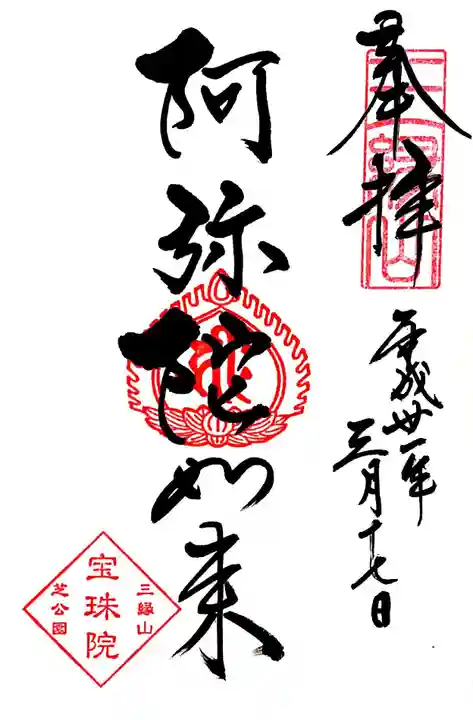 奉拝
三縁山
平成卅一年
三月十七日
阿弥陀如来
三縁山
宝珠院
芝公園